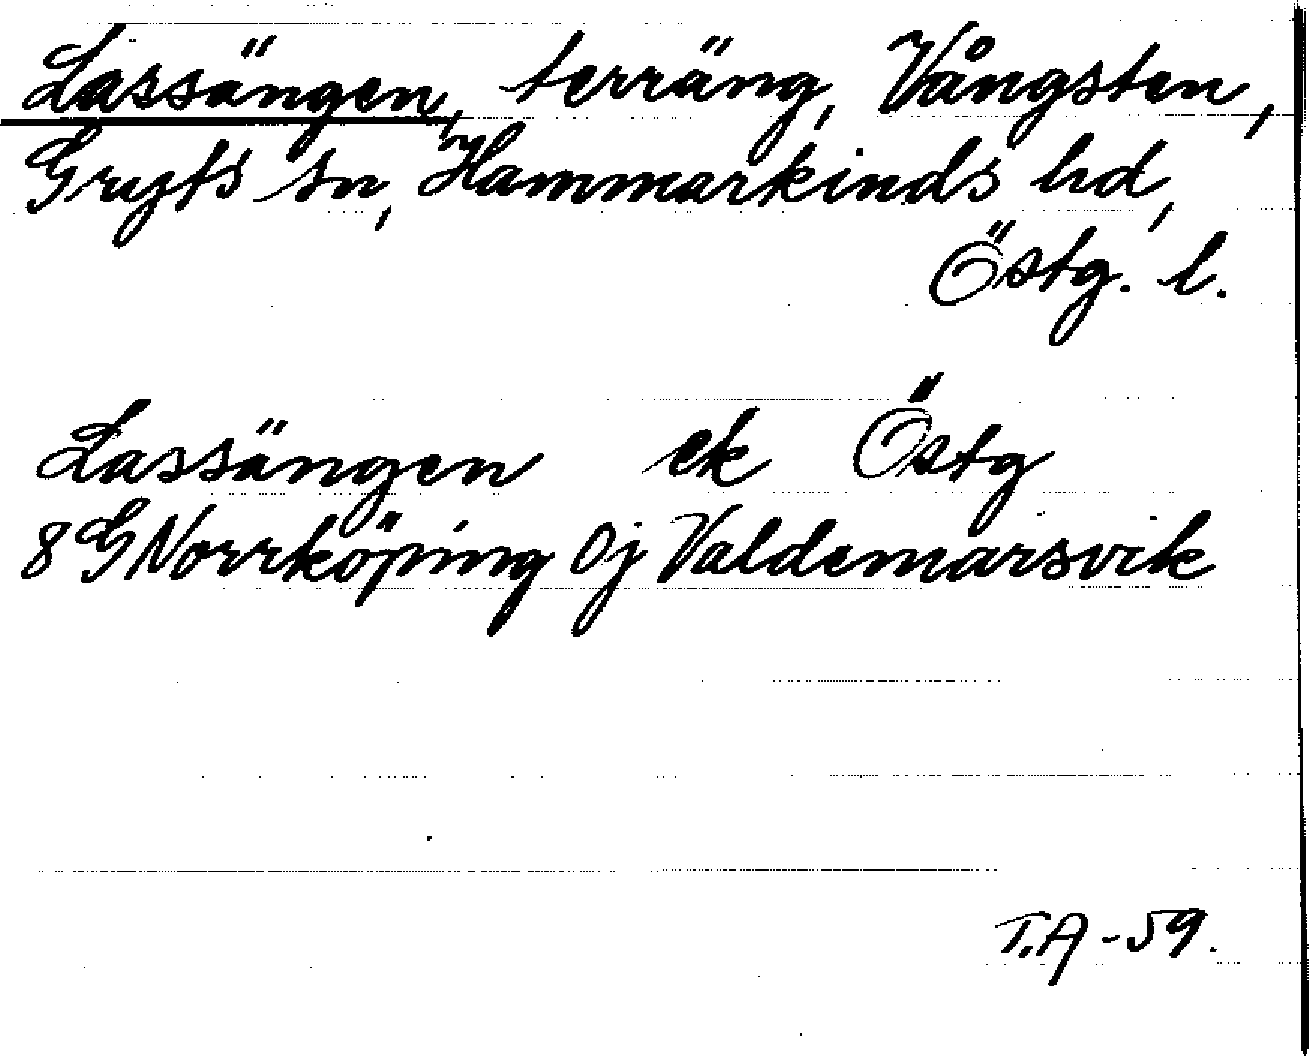 Lassängen, terräng, Vångsten,
Gryts sn, Hammarkinds hd,
Östg. l.
Lassängen ek Östg
8 G Norrköping 0j Valdemarsvik
T.A -59.